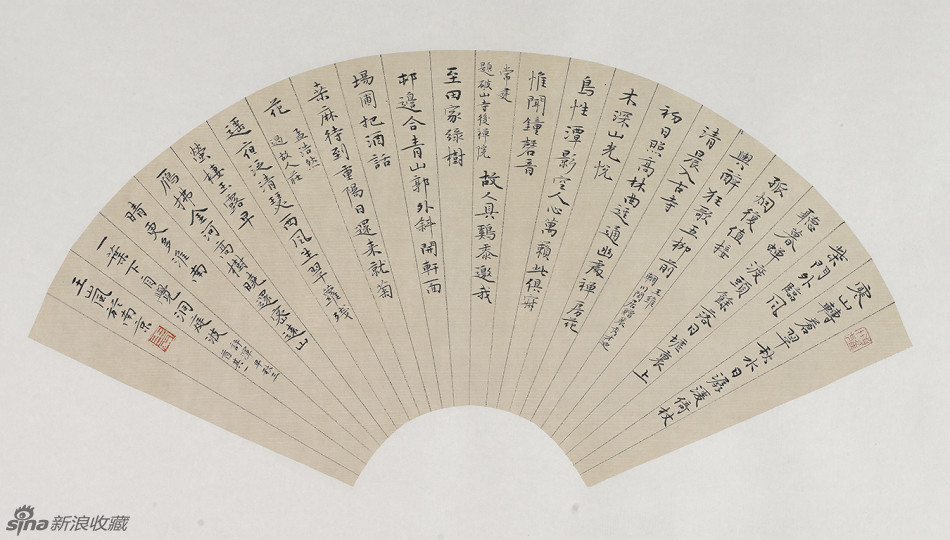 寒山轉蒼翠秋水日潺湲倚杖
柴門外臨風
聽暮蟬渡頭餘落日墟裏上
孤烟復值接
輿醉狂歌五柳前
王維
輞川閑居贈裴秀才迪
清晨入古寺
初日照高林曲逕通幽處禪房花
木深山光悅
鳥性潭影空人心萬籟此俱寂
惟聞鐘磬音
常建
題破山寺後禪院
故人具鷄黍邀我
至田家綠樹
邨邊合青山郭外斜開軒南
場圃把酒話
桑麻待到重陽日還來就菊
花
孟浩然
過故人莊
遥夜泛清瑟西風生翠蘿殘
螢棲玉露早
雁拂金河高樹曉還密遠山
晴更多淮南
一葉下自覺洞庭波
許渾早秋三
首其一
王風於南京
sina 新浪收藏